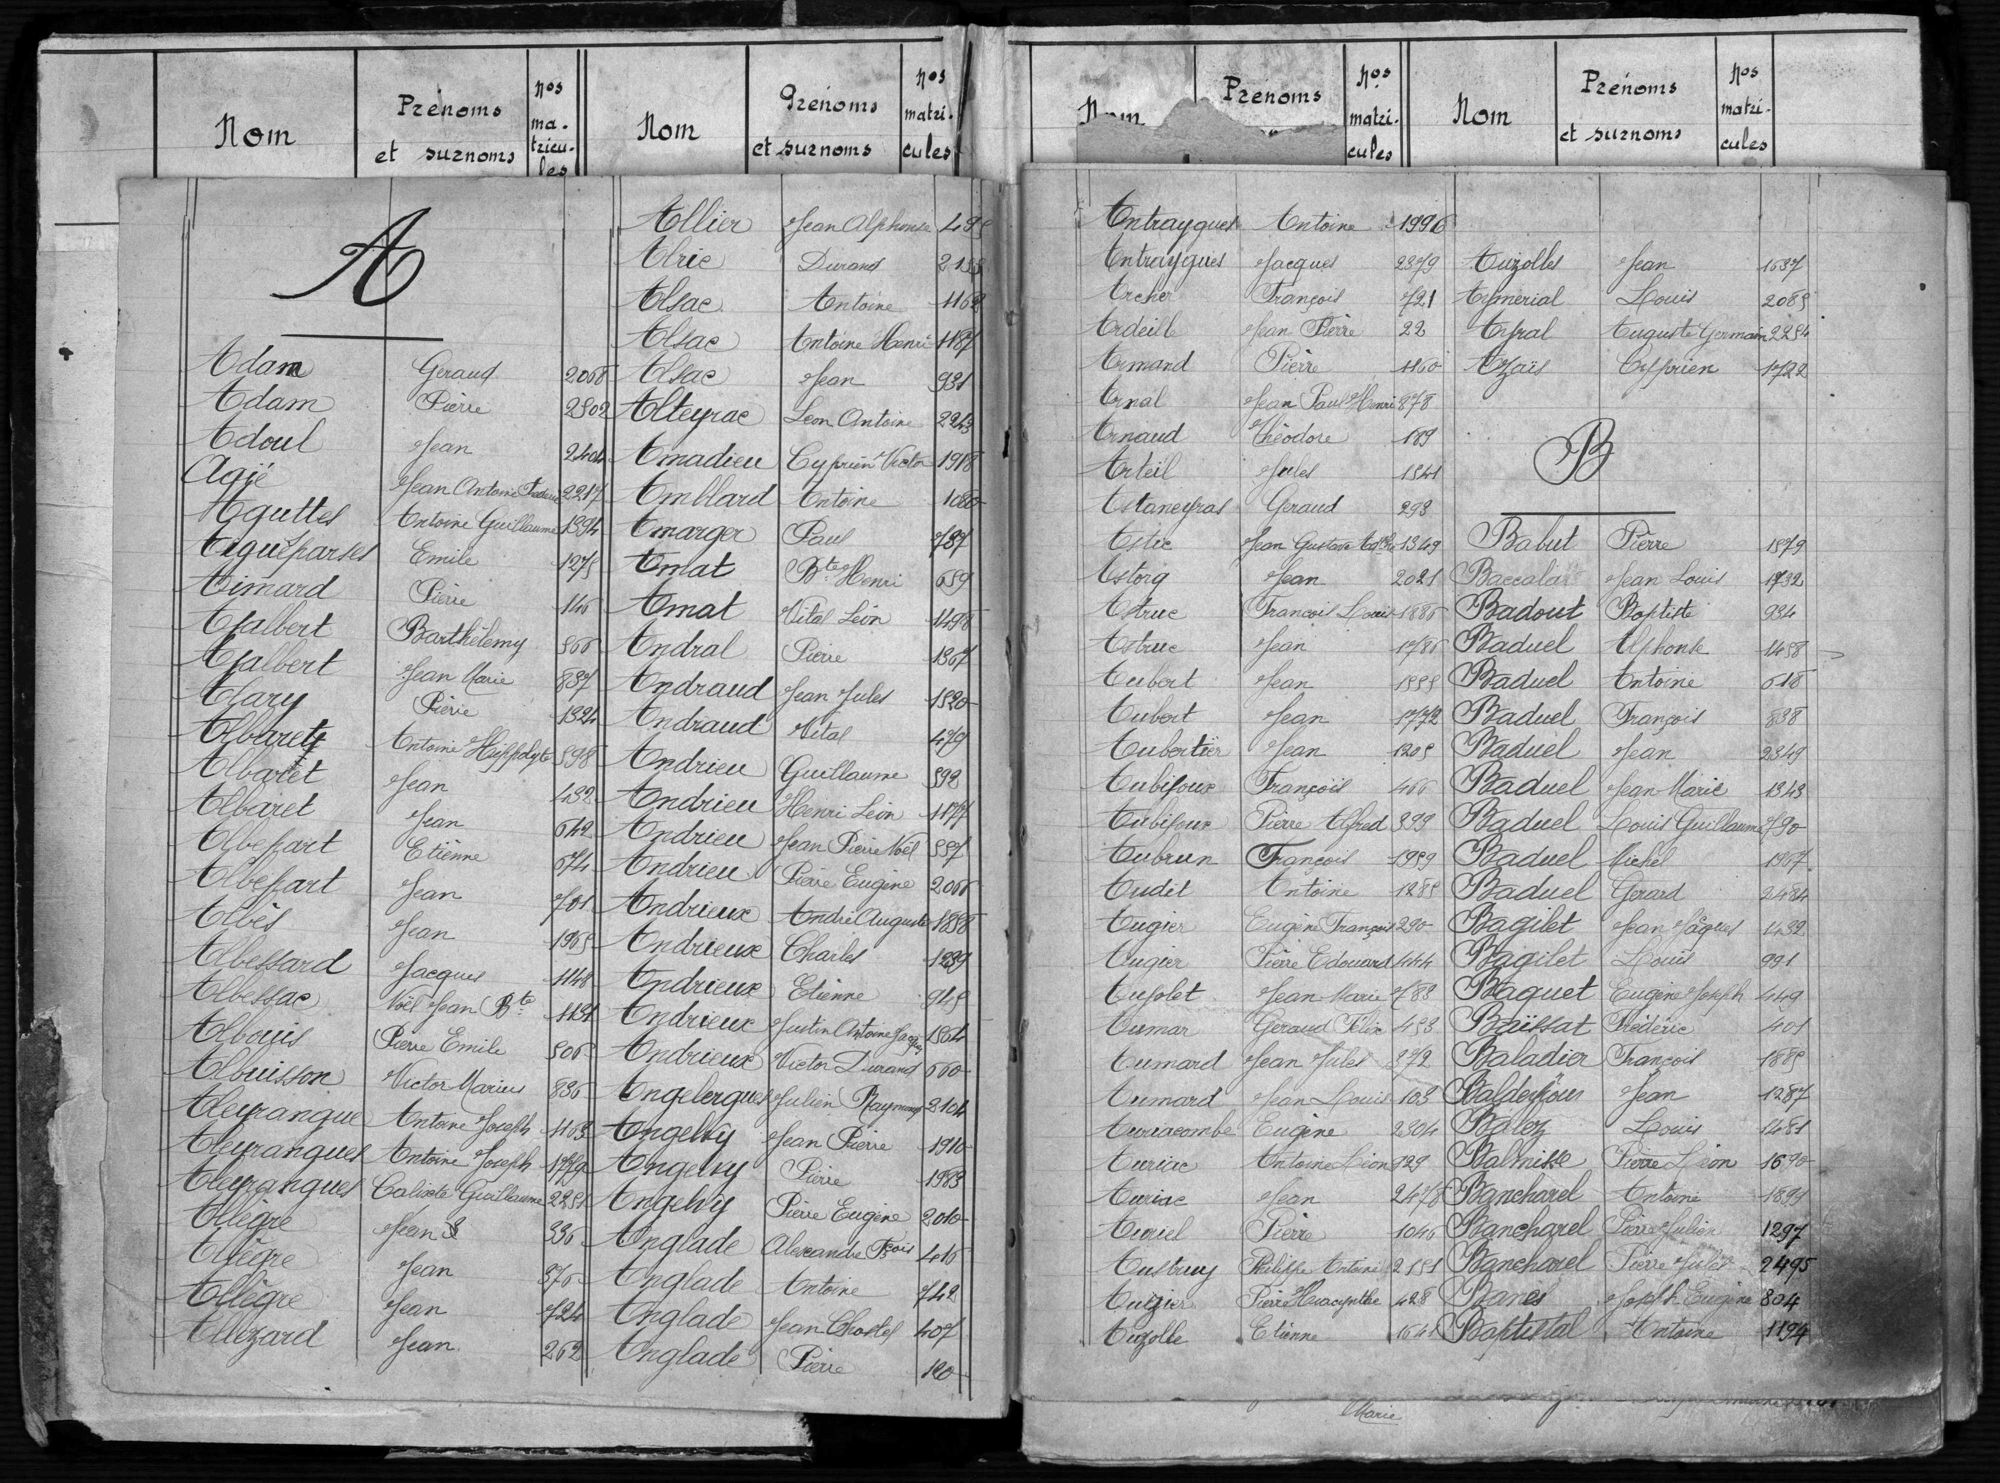 Nom Prénoms et surnoms Nos ma-tricu-les
Nom Prénoms et surnoms Nos matri-cules
A
Adam Geraud 2068
Adam Pierre 2502
Adoul Jean 2404
Agié Jean Antoine 2217
Aguttes Antoine Guillaume 1394
Aigueparses Emile 1275
Aimard Pierre 146
Ajalbert Barthélemy 566
Ajalbert Jean Marie 837
Alary Pierre 1324
Albaret Antoine Hippolyte 598
Albaret Jean 432
Albaret Jean 642
Albefart Etienne 674
Albefart Jean 701
Albès Jean 1965
Albessard Jacques 1148
Albessac Noël Jean Bte 1131
Albouis Pierre Emile 506
Albuisson Victor Marius 836
Aleyrangue Antoine Joseph 1163
Aleyrangues Antoine Joseph 1779
Aleyrangues Calixte Guillaume 2251
Allègre Jean 336
Allègre Jean 376
Allègre Jean 724
Allezard Jean 262
Allier Jean Alphonse 495
Alric Durand
Alsac Antoine 1162
Alsac Antoine Henri 1187
Alsac Jean 931
Alteyrac Leon Antoine 2243
Amadieu Cyprien Victor 1918
Amblard Antoine 1080
Amarger Paul 787
Amat Bte Henri 659
Amat Vital Léon 1498
Andral Pierre 1367
Andraud Jean Jules 1520
Andraud Vital 479
Andrieu Guillaume 592
Andrieu Henri Léon 1177
Andrieu Jean Pierre Noël 557
Andrieu Pierre Eugène 2066
Andrieux André Auguste 1858
Andrieux Charles 1239
Andrieux Etienne 945
Andrieux Justin Antoine Jacques 1504
Andrieux Victor Durand 660
Angelergues Julien Raymond 2104
Angelvy Jean Pierre 1910
Angelvy Pierre 1983
Angelvy Pierre Eugène 2010
Anglade Alexandre Fçois 416
Anglade Antoine 742
Anglade Jean Chastel 407
Anglade Pierre 120
Nom Prénoms Nos matri-cules
Nom Prénoms et surnoms Nos matri-cules
Antraygues Antoine 1996
Antraygues Jacques 2379
Archer François 721
Ardeill Jean Pierre 22
Armand Pierre 1160
Arnal Jean Paul Henri 878
Arnaud Théodore 189
Arteil Jules 1541
Astaneyras Geraud 293
Astic Jean Gustave 1349
Astorg Jean 2021
Astruc François Louis 1886
Astruc Jean 1786
Aubert Jean 1555
Aubert Jean 1772
Aubertier Jean 1205
Aubijoux François 466
Aubijoux Pierre Alfred 399
Aubrun François 1959
Audit Antoine 1285
Augier Eugène François 290
Augier Pierre Edouard 444
Aujolet Jean Marie 788
Aumar Geraud Félix 453
Aumard Jean Jules 372
Aumard Jean Louis 103
Auriacombe Eugène 2304
Auriac Antoine Léon 929
Auriac Jean 2478
Auriel Pierre 1046
Austruy Philippe Antoine 2151
Auzier Pierre Hyacynthe 428
Auzolle Etienne 1641
Auzolles Jean 1637
Aymerial Louis 2085
Ayral Auguste Germain 2254
Azaïs Cyprien 1722
B
Babut Pierre 1579
Baccala Jean Louis 1732
Badout Baptiste 934
Baduel Alphonse 1458
Baduel Antoine 618
Baduel François 838
Baduel Jean 2349
Baduel Jean Marie 1343
Baduel Louis Guillaume 790
Baduel Michel 1967
Baduel Gerard 2484
Bagilet Jean Jâques 1432
Bagilet Louis 991
Baquet Eugène Joseph 449
Baïssat Fréderic 401
Baladier François 1685
Jean 1287
Balez Louis 1481
Balmisse Pierre Léon 1690
Bancharel Antoine 1899
Bancharel Pierre Julien 1297
Bancharel Pierre Jules 2495
Banes Joseph Eugène 804
Baptistal Antoine 1194
Marie